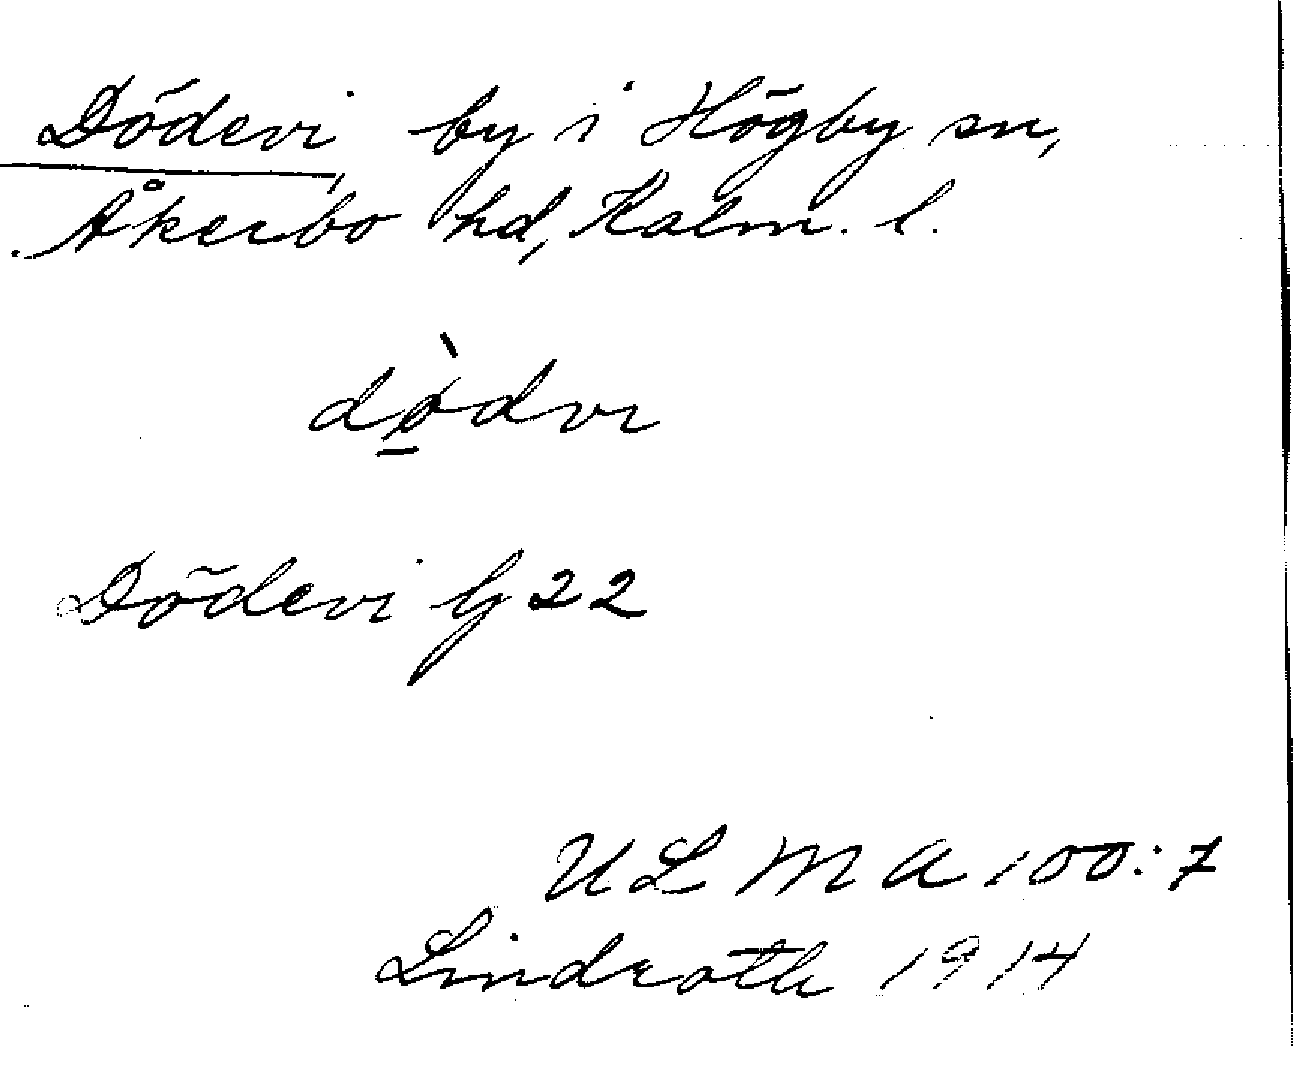 Dödevi, by i Högby sn,
Åkerbo hd, Kalm. l.
dø̱̀dvi
Dödevi G 22
ULMA 100:7
Lindroth 1914